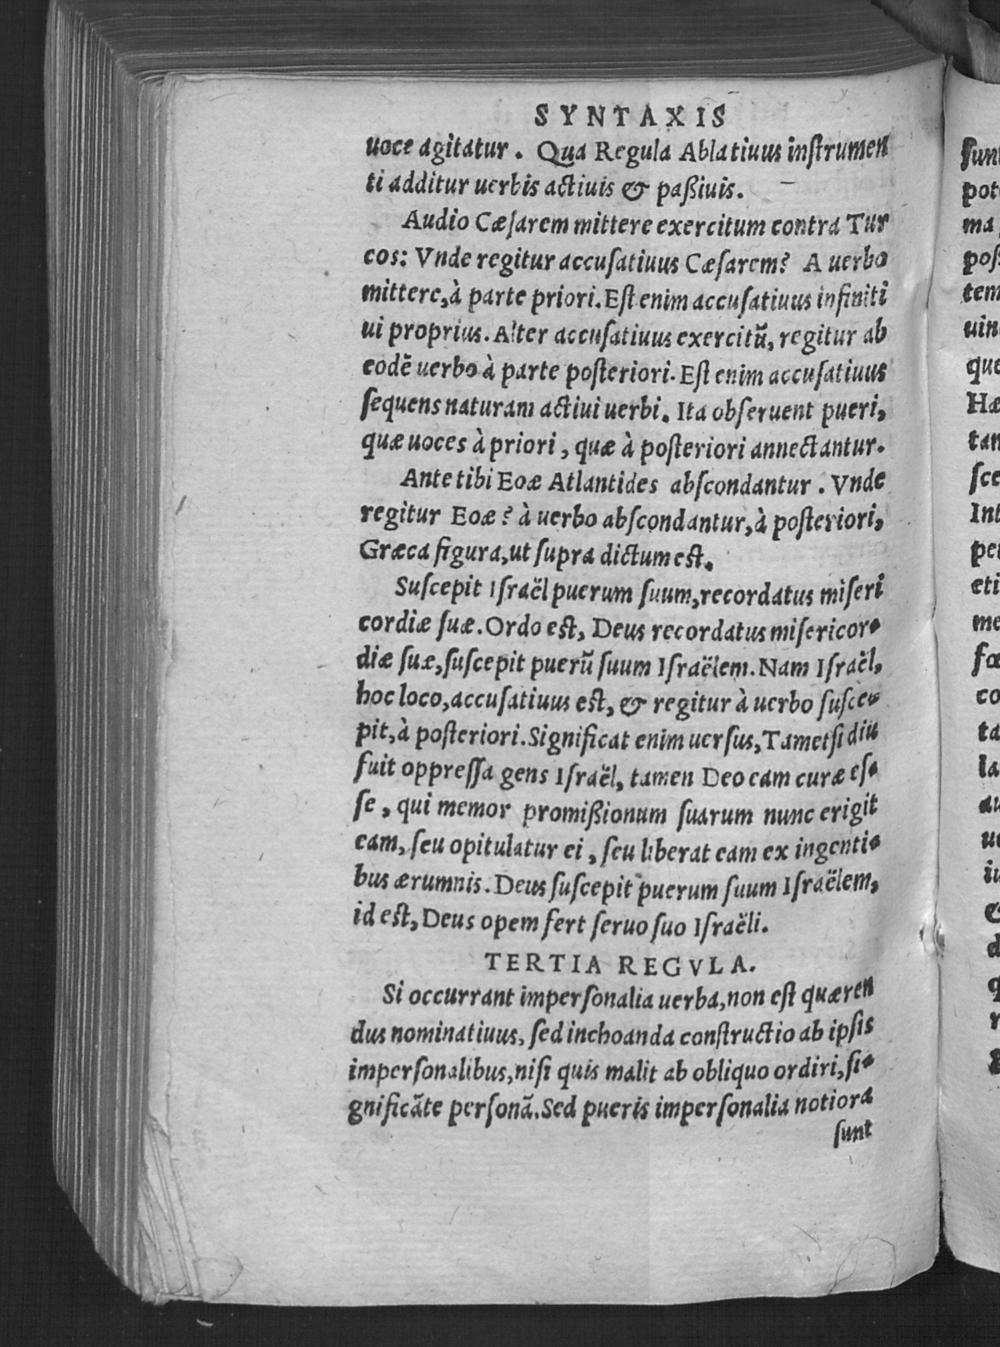 SYNTAXIS
uoce agitatur. Qua Regula Ablatiuus inſtrumen
ti additur uerbis actiuis & paßiuis.
Audio Cæſarem mittere exercitum contra Tur
cos: Vnde regitur accuſatiuus Cæſarem? A uerbo
mittere, à parte priori. Eſt enim accuſatiuus infiniti
ui proprius. Alter accuſatiuus exercitũ, regitur ab
eodẽ uerbo à parte poſteriori. Eſt enim accuſatiuus
ſequens naturam actiui uerbi. Ita obſeruent pueri,
quæ uoces à priori, quæ à poſteriori annectantur.
Ante tibi Eoæ Atlantides abſcondantur. Vnde
regitur Eoæ? à uerbo abſcondantur, à poſteriori,
Græca figura, ut ſupra dictum eſt.
Suſcepit Iſraël puerum ſuum, recordatus miſeri
cordiæ ſuæ. Ordo eſt, Deus recordatus miſericor-
diæ ſuæ, ſuſcepit puerũ ſuum Iſraëlem. Nam Iſraël,
hoc loco, accuſatiuus eſt, & regitur à uerbo ſuſce-
pit, à poſteriori. Significat enim uerſus, Tametſi diu
fuit oppreſſa gens Iſraël, tamen Deo eam curæ eſ-
ſe, qui memor promißionum ſuarum nunc erigit
eam, ſeu opitulatur ei, ſeu liberat eam ex ingenti-
bus ærumnis. Deus ſuſcepit puerum ſuum Iſraëlem,
id eſt, Deus opem fert ſeruo ſuo Iſraëli.
TERTIA REGVLA.
Si occurrant imperſonalia uerba, non eſt quæren
dus nominatiuus, ſed inchoanda conſtructio ab ipſis
imperſonalibus, niſi quis malit ab obliquo ordiri, ſi-
gnificãte perſonã. Sed pueris imperſonalia notiora
ſunt